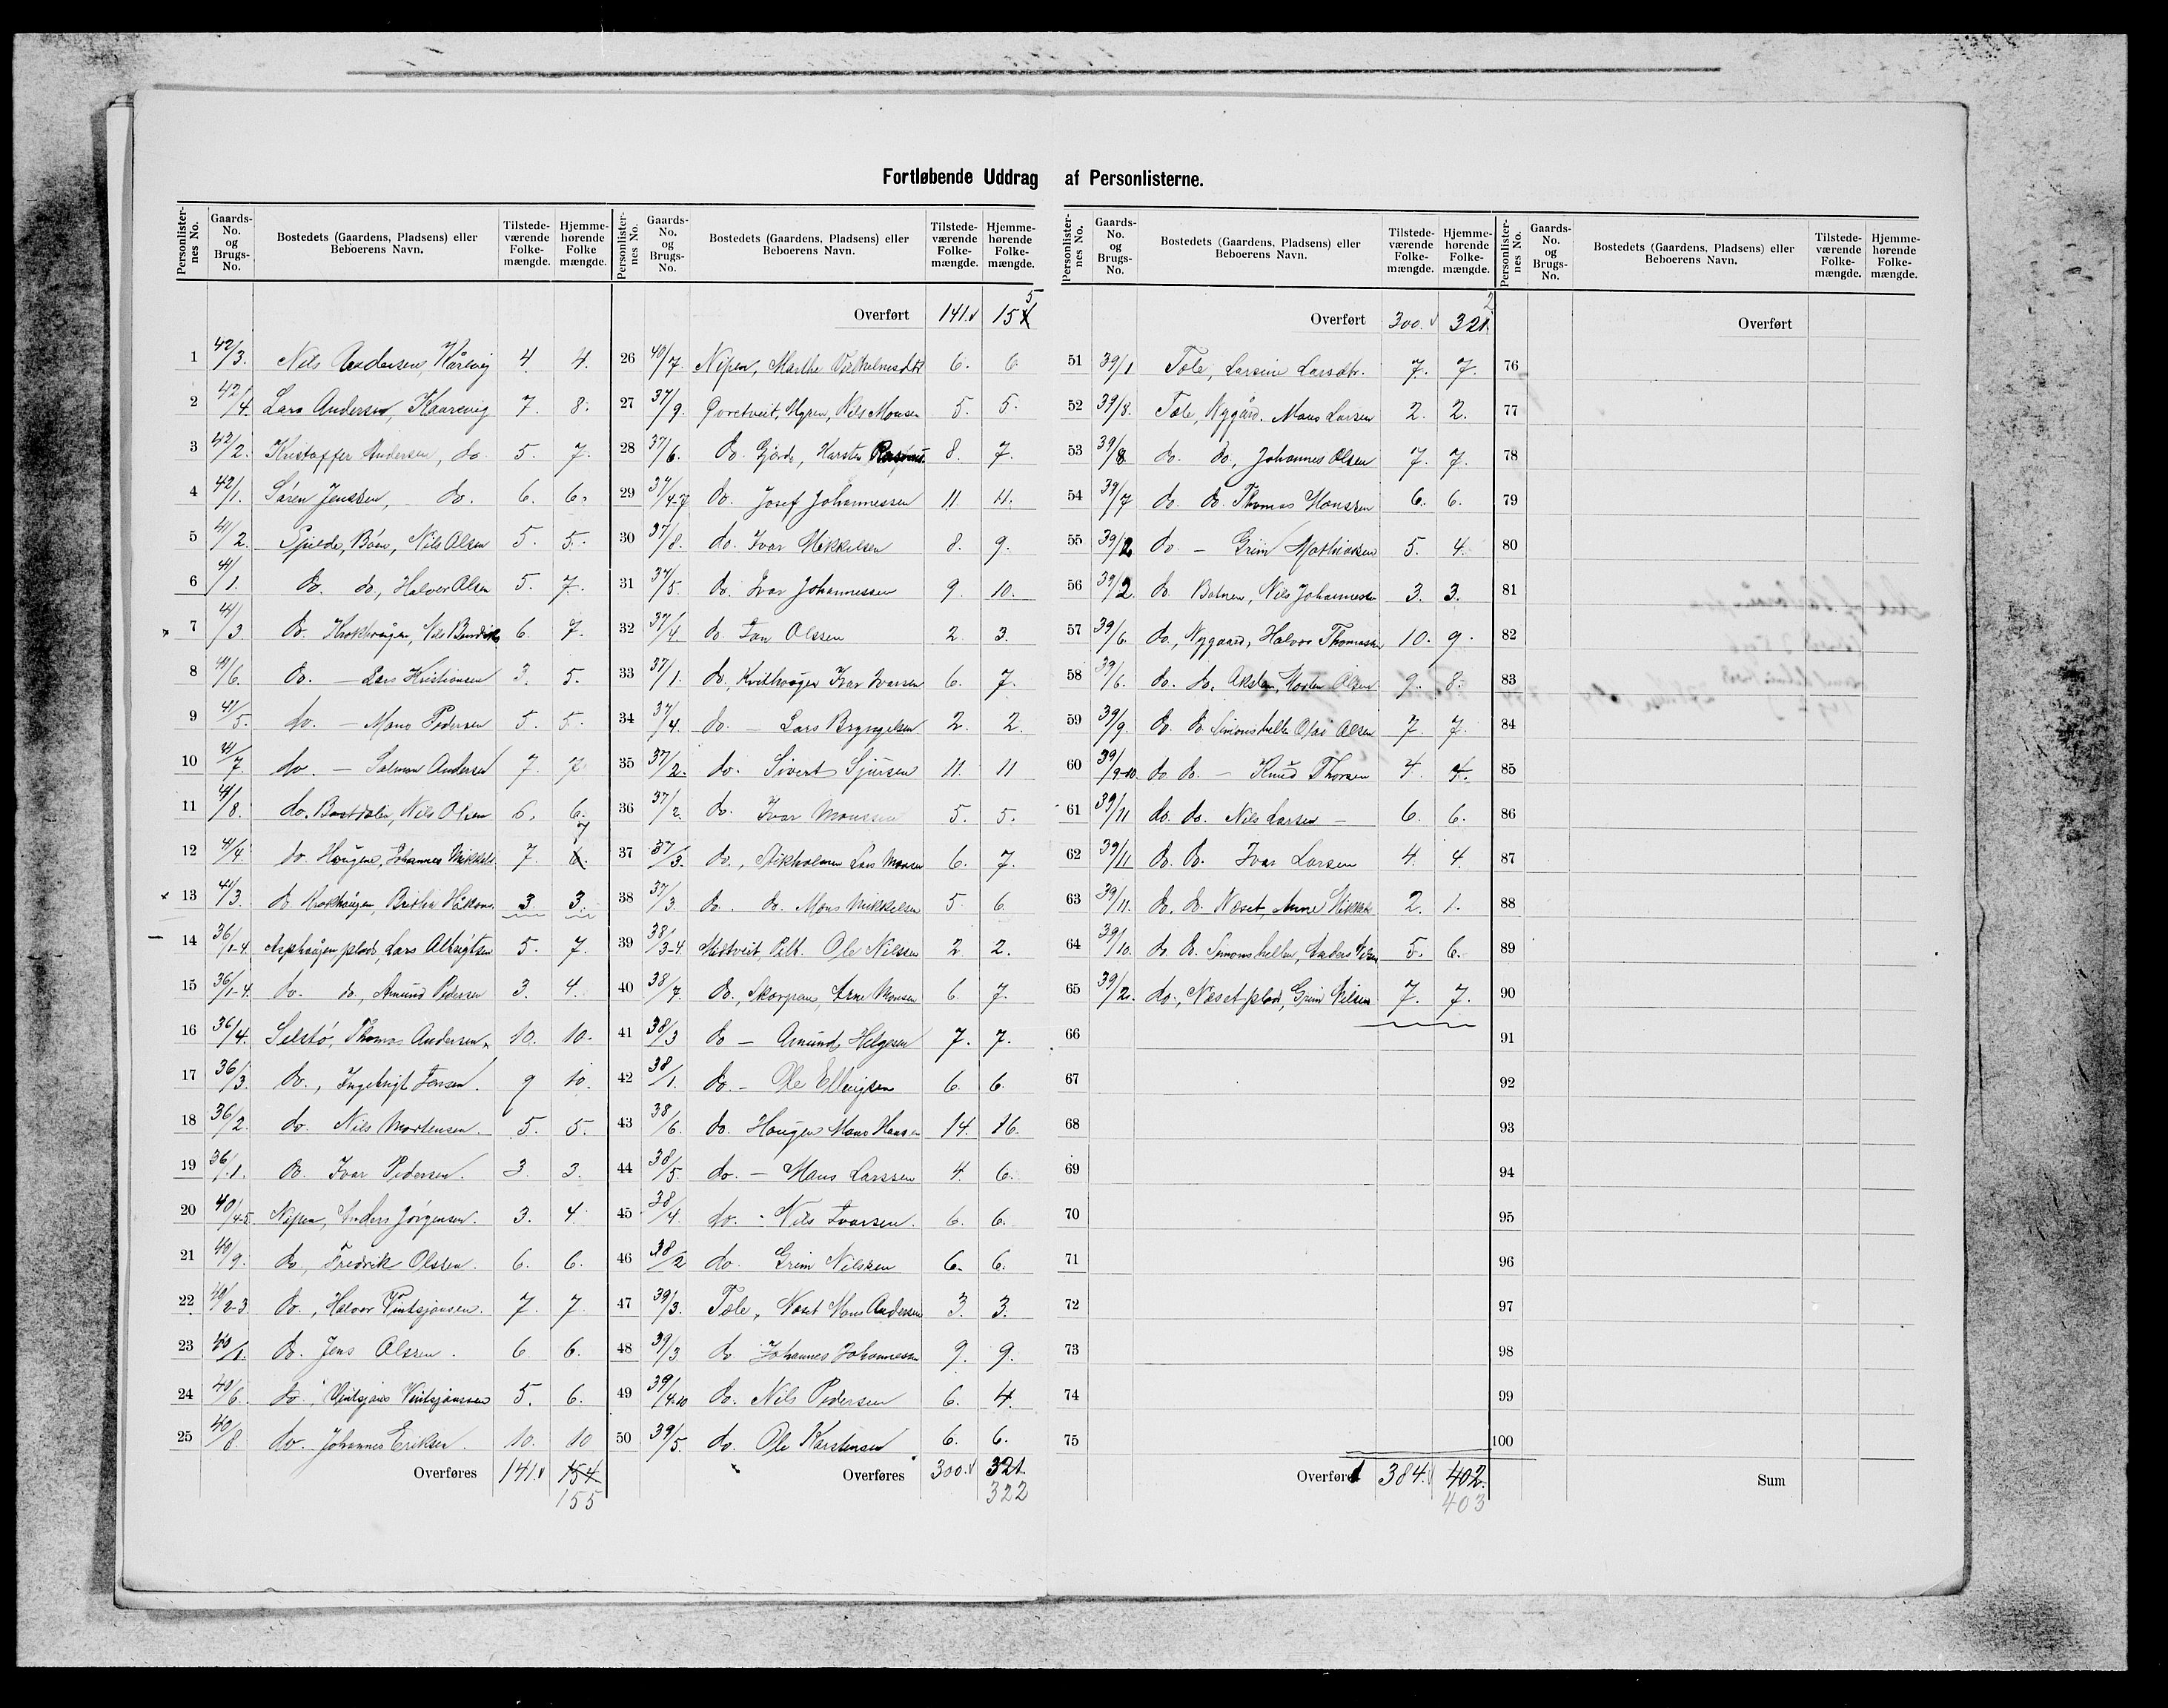 Fortløbende Uddrag af Personlisterne.
Personlisternes No. Gaards-No. og Brugs-No. Bostedets (Gaardens, Pladsens) eller Beboerens Navn. Tilstedeværende Folkemængde. Hjemmehørende Folkemængde.
1 42/3. Nils Andersen, Kårevig 4. 4.
2 42/4. Lars Andersen, Kaarevig 7. 8.
3 42/2. Kristoffer Andersen, do 5. 7.
4 42/1. Søren Jenssen, do. 6. 6.
5 41/2. Spilde, Bøen, Nils Olsen 5. 5.
6 41/1. do. do, Halvor Olsen 5. 7.
7 41/3 do. Krokhaugen, Nils 6. 7.
8 41/6. do. — Lars Kristiansen 3. 5.
9 41/5. do. — Mons Pedersen 5. 5.
10 41/7. do. — Salmon Andersen 7. 7
11 41/8. do. Nils Olsen 6. 6.
12 41/4. do. Haugene, Johannes Mikkels. 7. 7
13 41/3. do. Krokhaugen, 3. 3.
14 36/1-4. plads, Lars 5. 7.
15 36/1-4. do. do, Amund Pedersen 3. 4.
16 36/4. Selstø, Thomas Andersen 10. 10.
17 36/3. do., Ingebrigt Jensen. 9 10.
18 36/2. do. Nils Mortensen. 5. 5.
19 36/1. do. Ivar Pedersen. 3. 3.
20 40/4-5. Nipen, Anders Jørgensen. 3. 4.
21 40/9. do, Fredrik Olssen. 6. 6.
22 40/2-3 do., Halvor Vintsjansen. 7. 7
23 40/1. do. Jens Olssen. 6. 6.
24 40/6. do. Vintsjans Vintsjanssen 5. 6.
25 40/8. do. Johannes Eriksen. 10. 10
Overføres 141. 154
155
Personlisternes No. Gaards-No. og Brugs-No. Bostedets (Gaardens, Pladsens) eller Beboerens Navn. Tilstedeværende Folkemængde. Hjemmehørende Folkemængde.
Overført 141. 154 5
26 40/7. Nipen, Marthe Vilhelmsdtr 6. 6.
27 37/9. Øvretveit, Myren, Nils Monsen 5. 5.
28 37/6. do. Gjerde, Karsten Rasmus. 8. 7.
29 37/4-7 do. Josef Johannessen 11 11.
30 37/8. do. Ivar Mikkelsen 8. 9.
31 37/5. do. Ivar Johannessen 9. 10.
32 37/4. do. Jan Olssen 2. 3.
33 37/1. do, Ivar Ivarsen 6. 7.
34 37/4. do — Lars Bryngelsen 2. 2.
35 37/2. do. Sivert Sjursen 11. 11
36 37/2. do. Ivar Monssen 5. 5.
37 37/3. do., Stikholmen Lars Monsen 6. 7.
38 37/3. do. do. Mons Mikkelsen 5 6
39 38/3-4. Midtveit, Ole Nilssen 2 2.
40 38/7. do., Skorpen, Arne Monsen 6. 7.
41 38/3 do — Amund Helgesen 7. 7.
42 38/1. do. — Ole Ellingsen 6. 6.
43 38/6. do. Haugen Mons Hansen 14. 16.
44 38/5. do. — Hans Larssen 4. 6.
45 38/4. do. - Nils Ivarsen. 6. 6.
46 38/2 do. Grim Nilssen 6. 6.
47 39/3. Tole, Neset Mons Andersen 3. 3.
48 39/3 do. Johannes Johannessen 9. 9.
49 39/4-10 do. Nils Pedersen 6. 4.
50 39/5. do. Ole Karstensen 6. 6.
Overføres 300. 321
322
Personlisternes No. Gaards-No. og Brugs-No. Bostedets (Gaardens, Pladsens) eller Beboerens Navn. Tilstedeværende Folkemængde. Hjemmehørende Folkemængde.
Overført 300. 321. 2
51 39/1 Tole, Larsine Larsdtr. 7. 7.
52 39/8. Tole, Nygård. Mons Larsen 2. 2.
53 39/8 do. do., Johannes Olsen 7. 7.
54 39/7 do. do. Thomas Hanssen 6. 6.
55 39/2 do. — Grim Mathiassen 5. 4.
56 39/2. do. Botnen, Nils Johannessen 3. 3.
57 39/6. do., Nygaard, Halvor Thomassen 10. 9.
58 39/6. do. do, Olsen 9. 8.
59 39/9. do. do. Simonshelle Olai Olsen 7. 7.
60 39/9-10. do. do. — Knud Thorsen 4. 4.
61 39/11 do. do. Nils Larsen — 6. 6.
62 39/11 do. do. Ivar Larsen 4. 4.
63 39/11. do. do. Neset, Anne Mikkels. 2. 1.
64 39/10. do. do. Simonshellen, Anders 5. 6.
65 39/2. do., Neset plads, Grim Nilsen 7. 7.
66
67
68
69
70
71
72
73
74
75
Overført 384. 402.
403
Personlisternes No. Gaards-No. og Brugs-No. Bostedets (Gaardens, Pladsens) eller Beboerens Navn. Tilstedeværende Folkemængde. Hjemmehørende Folkemængde.
Overført
76
77
78
79
80
81
82
83
84
85
86
87
88
89
90
91
92
93
94
95
96
97
98
99
100
Sum